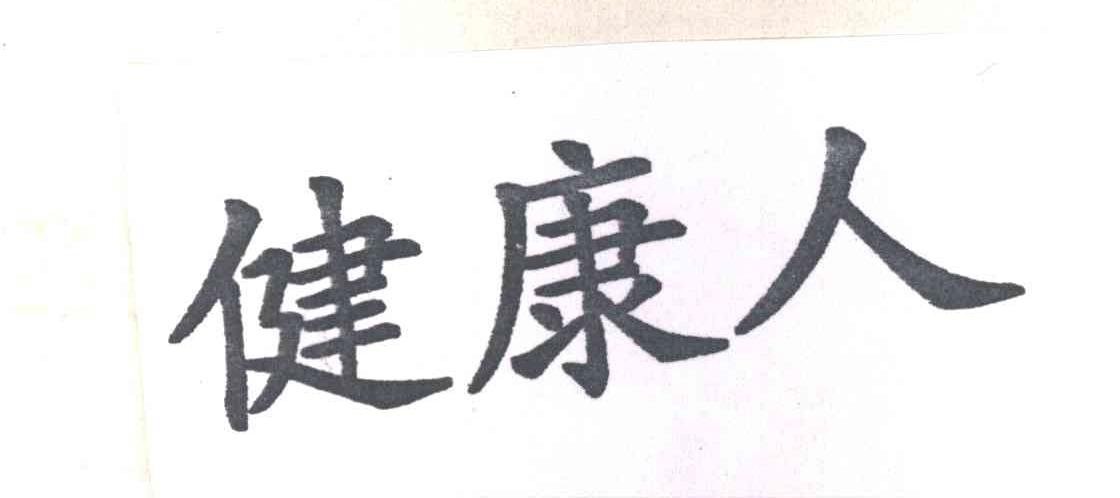 健康人